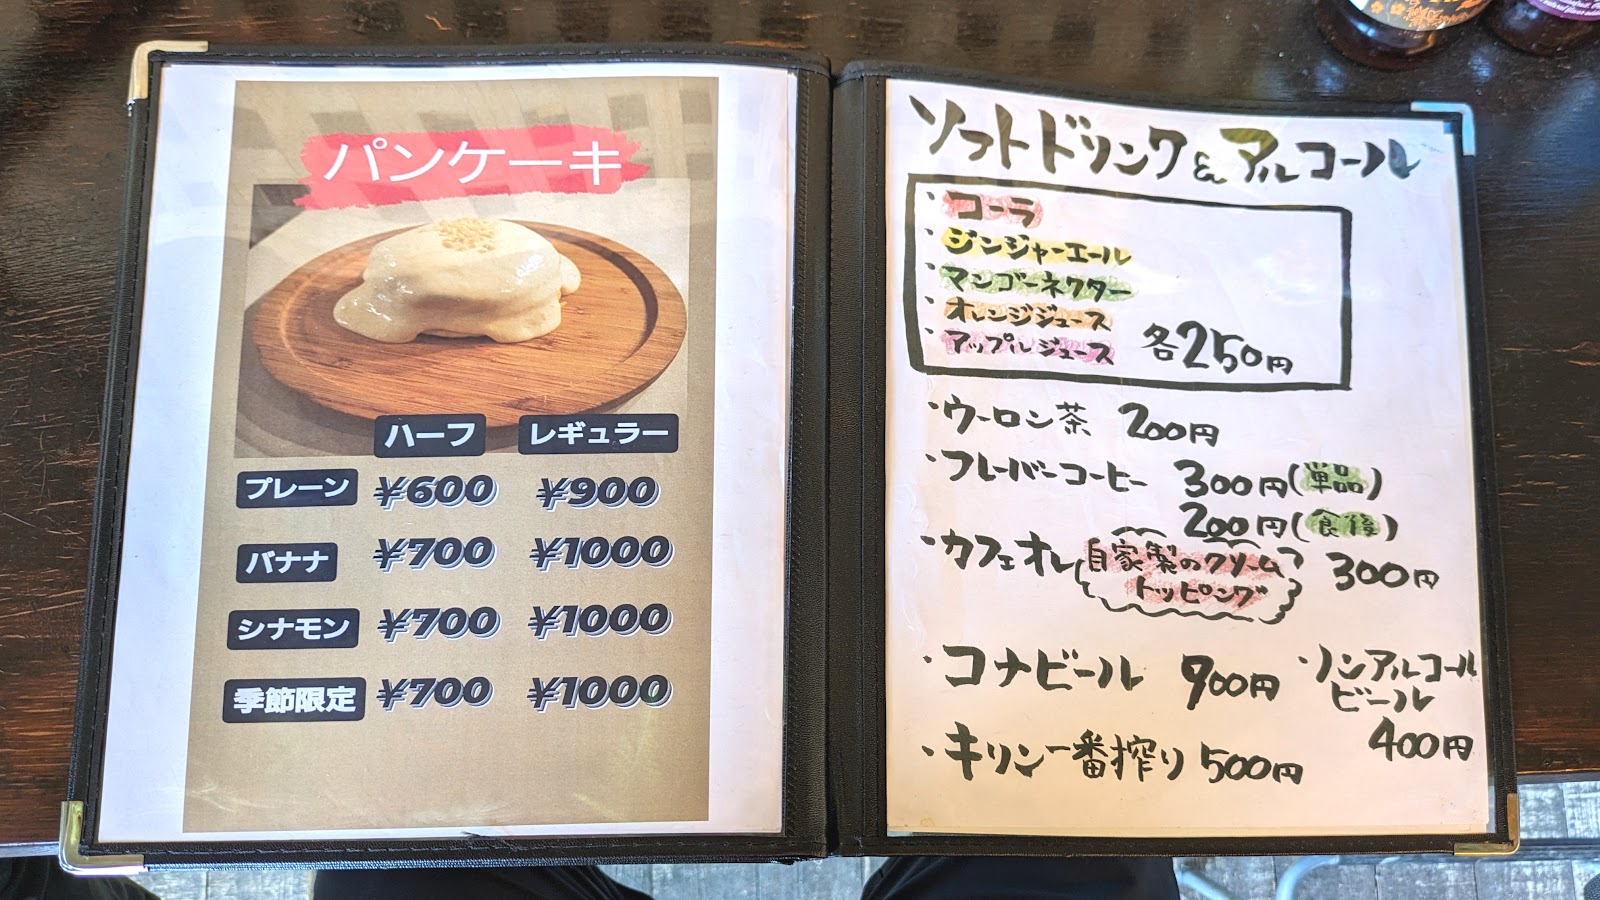 パンケーキ
ハーフ レギュラー
プレーン ¥600 ¥900
バナナ ¥700 ¥1000
シナモン ¥700 ¥1000
季節限定 ¥700 ¥1000
ソフトドリンク & アルコール
・コーラ
・ジンジャーエール
・マンゴーネクター
・オレンジジュース
・アップルジュース 各250円
・ウーロン茶 200円
・フレーバーコーヒー 300円(単品)
200円(食後)
・カフェオレ(自家製のクリーム
トッピング) 300円
・コナビール 900円
・ノンアルコール
ビール
400円
・キリン一番搾り 500円